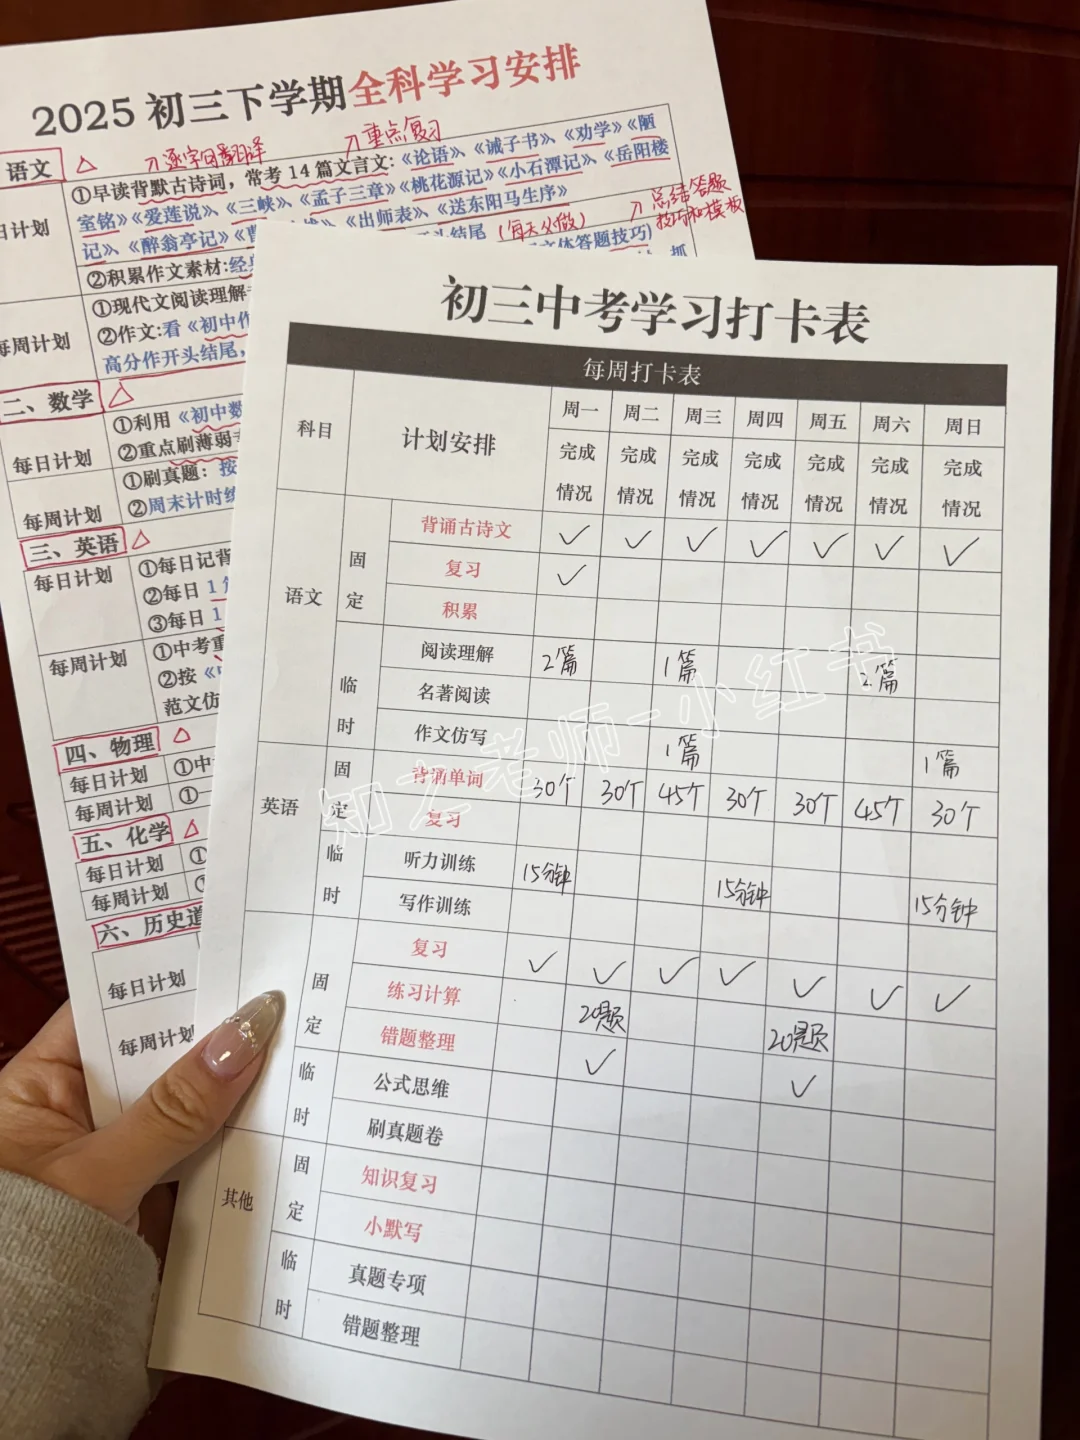 2025 初三下学期全科学习安排
语文
逐字句翻译
重点复习
①早读背默古诗词，常考 14 篇文言文:《论语》、《诫子书》、《劝学》《陋
室铭》《爱莲说》、《三峡》、《孟子三章》《桃花源记》《小石潭记》、《岳阳楼
记》、《醉翁亭记》
《出师表》、《送东阳马生序》
日计划
(每天必做)
总结答题
技巧和模板
②积累作文素材:经
文体答题技巧)
每周计划
①现代文阅读理解
②作文:看《初中作
高分作开头结尾，
二、数学
每日计划
①利用《初中数
②重点刷薄弱
每周计划
①刷真题: 按
②周末计时练
三、英语
每日计划
①每日记背
②每日 1 篇
③每日 1
每周计划
①中考重
②按《
范文仿
四、物理
每日计划
①中
每周计划
①一
五、化学
每日计划
①
每周计划
①
六、历史道
每日计划
每周计划
初三中考学习打卡表
每周打卡表
科目 计划安排 周一 周二 周三 周四 周五 周六 周日
完成 完成 完成 完成 完成 完成 完成
情况 情况 情况 情况 情况 情况 情况
语文 固定 背诵古诗文 ✓ ✓ ✓ ✓ ✓ ✓ ✓
复习 ✓
积累
临时 阅读理解 2篇 1篇 2篇
名著阅读
作文仿写 1篇 1篇
英语 固定 背诵单词 30个 30个 45个 30个 30个 45个 30个
复习
临时 听力训练 15分钟 15分钟 15分钟
写作训练
固定 复习 ✓ ✓ ✓ ✓ ✓ ✓ ✓
练习计算 20题 20题
错题整理 ✓ ✓
临时 公式思维
刷真题卷
其他 固定 知识复习
小默写
临时 真题专项
错题整理
知之老师-小红书